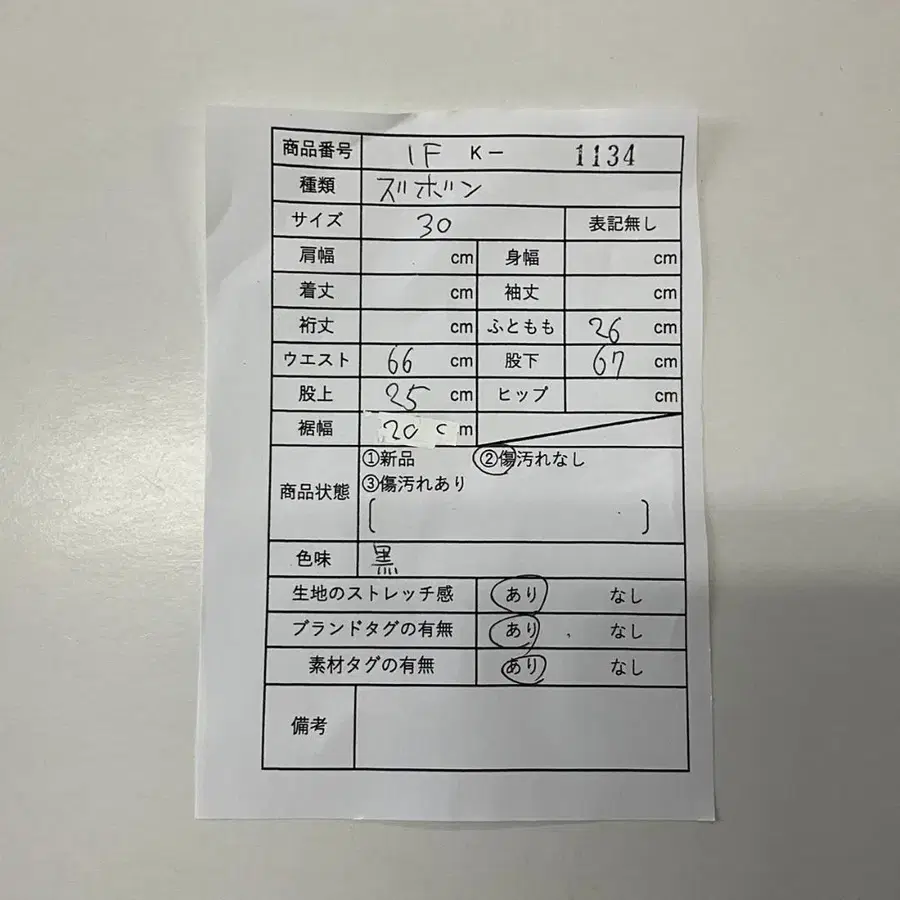 商品番号 1F K- 1134
種類 ズボン
サイズ 30 表記無し
肩幅 cm 身幅 cm
着丈 cm 袖丈 cm
裄丈 cm ふともも 26 cm
ウエスト 66 cm 股下 67 cm
股上 25 cm ヒップ cm
裾幅 20 cm
商品状態 ①新品 ②傷汚れなし
③傷汚れあり
[ ]
色味 黒
生地のストレッチ感 あり なし
ブランドタグの有無 あり なし
素材タグの有無 あり なし
備考